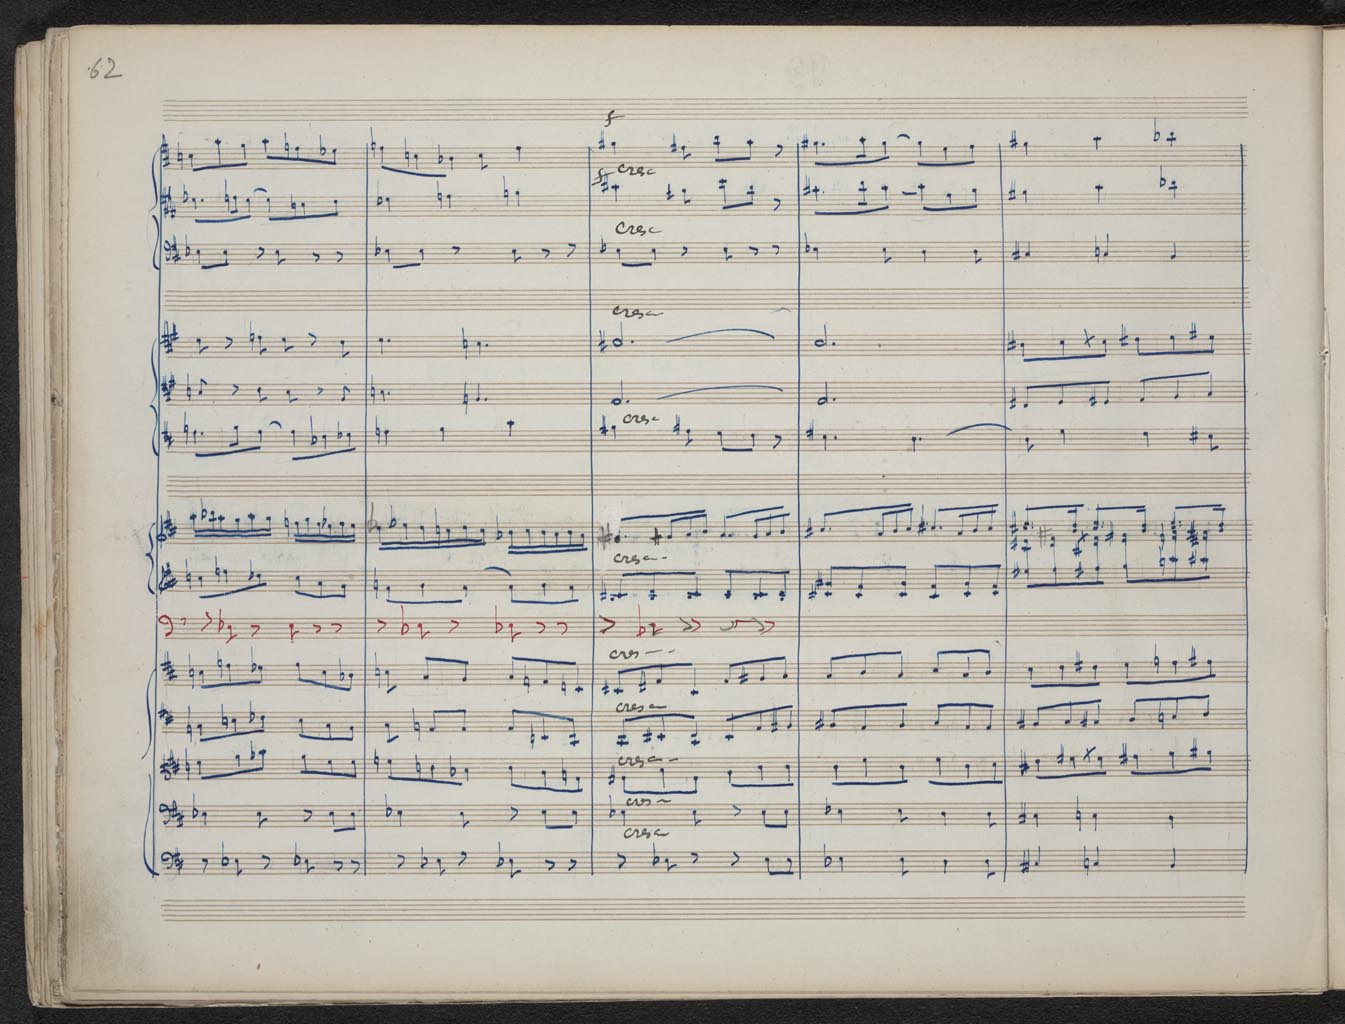 62
f
cresc
f
cresc
cresc
cresc
cresc -
cres - - -
cresc
cresc -
cres -
cresc